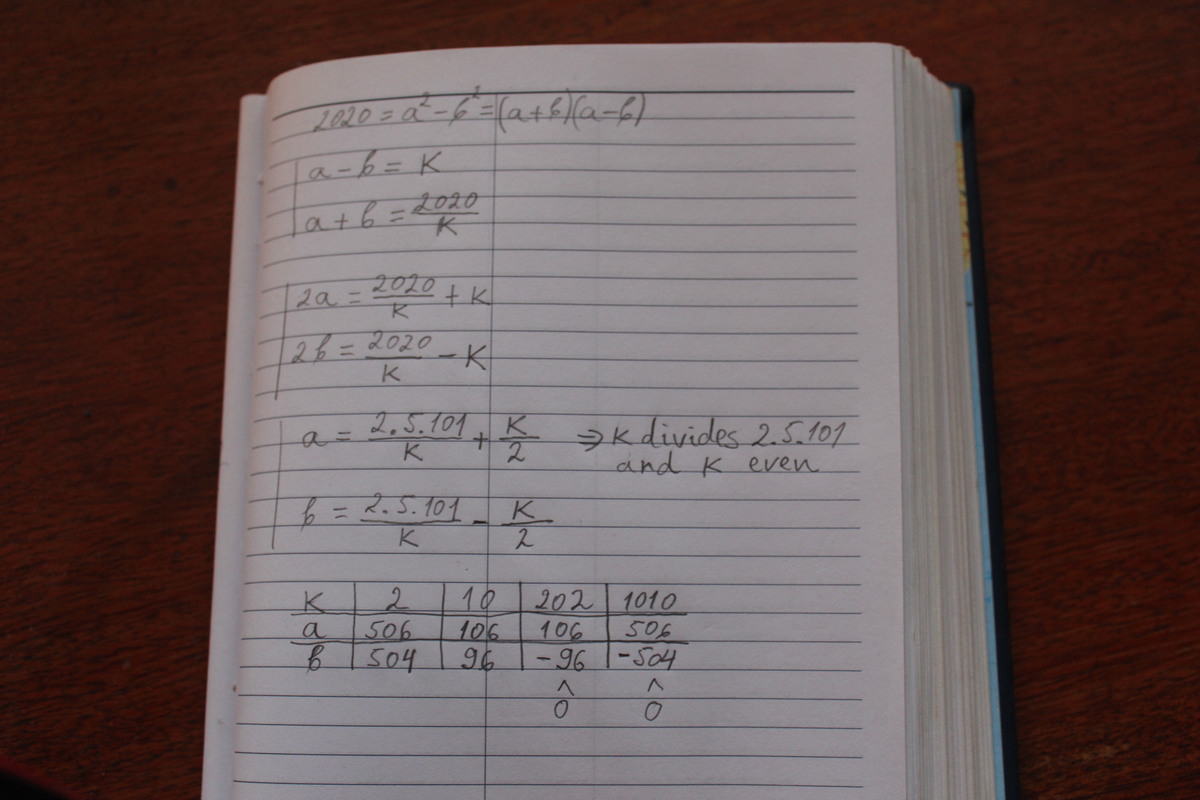 2020 = a² - b² = (a+b)(a-b)
a - b = K
a + b = 2020/K
2a = 2020/K + K
2b = 2020/K - K
a = 2.5.101/K + K/2 ⇒ K divides 2.5.101
and K even
b = 2.5.101/K - K/2
K 2 10 202 1010
a 506 106 106 506
b 504 96 -96 -504
^ ^
0 0